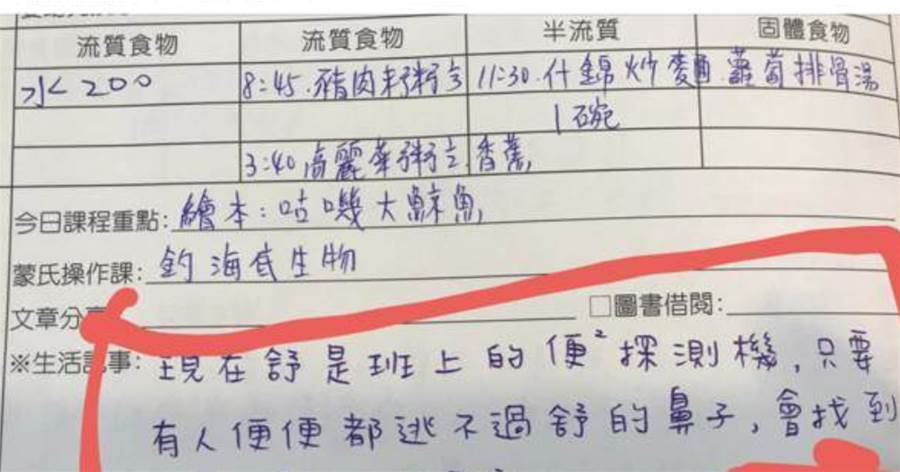 流質食物 流質食物 半流質 固體食物
水200 8:45.豬肉籽粥 11:30.什錦炒麵 蘿蔔排骨湯
1碗
3:40高麗菜粥 香蕉
今日課程重點: 繪本:咕嘰大鯨魚
蒙氏操作課: 釣海底生物
文章分享 □圖書借閱:
※生活記事: 現在舒是班上的便²探測機,只要
有人便便都逃不過舒的鼻子,會找到